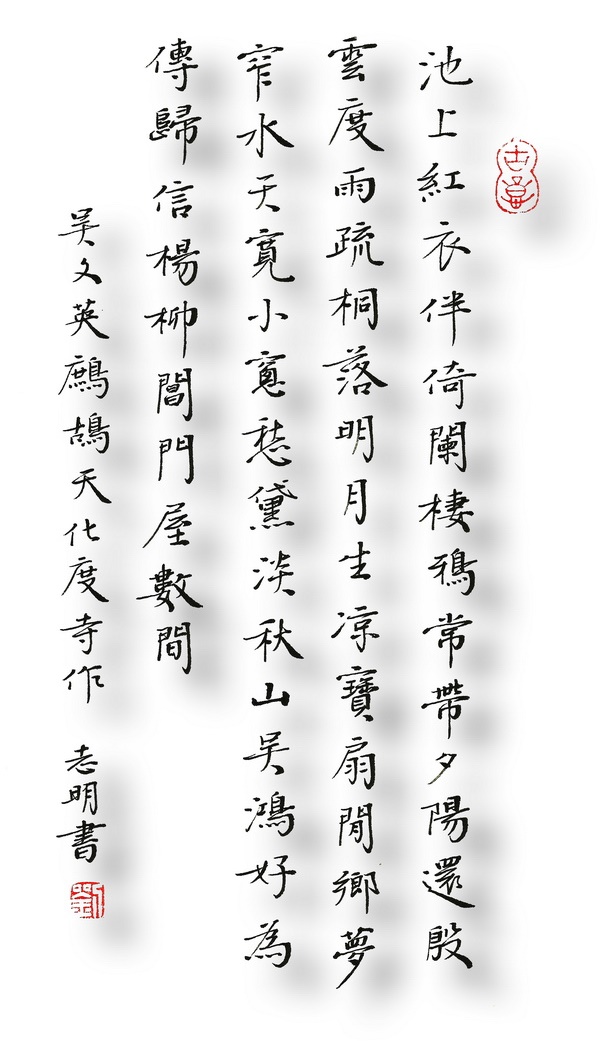 池上紅衣伴倚闌棲鴉常帶夕陽還殷
雲度雨疏桐落明月生凉寶扇閒鄉夢
窄水天寬小窻愁黛淡秋山吳鴻好為
傳歸信楊柳閶門屋數間
吳文英鷓鴣天化度寺作 志明書
劉